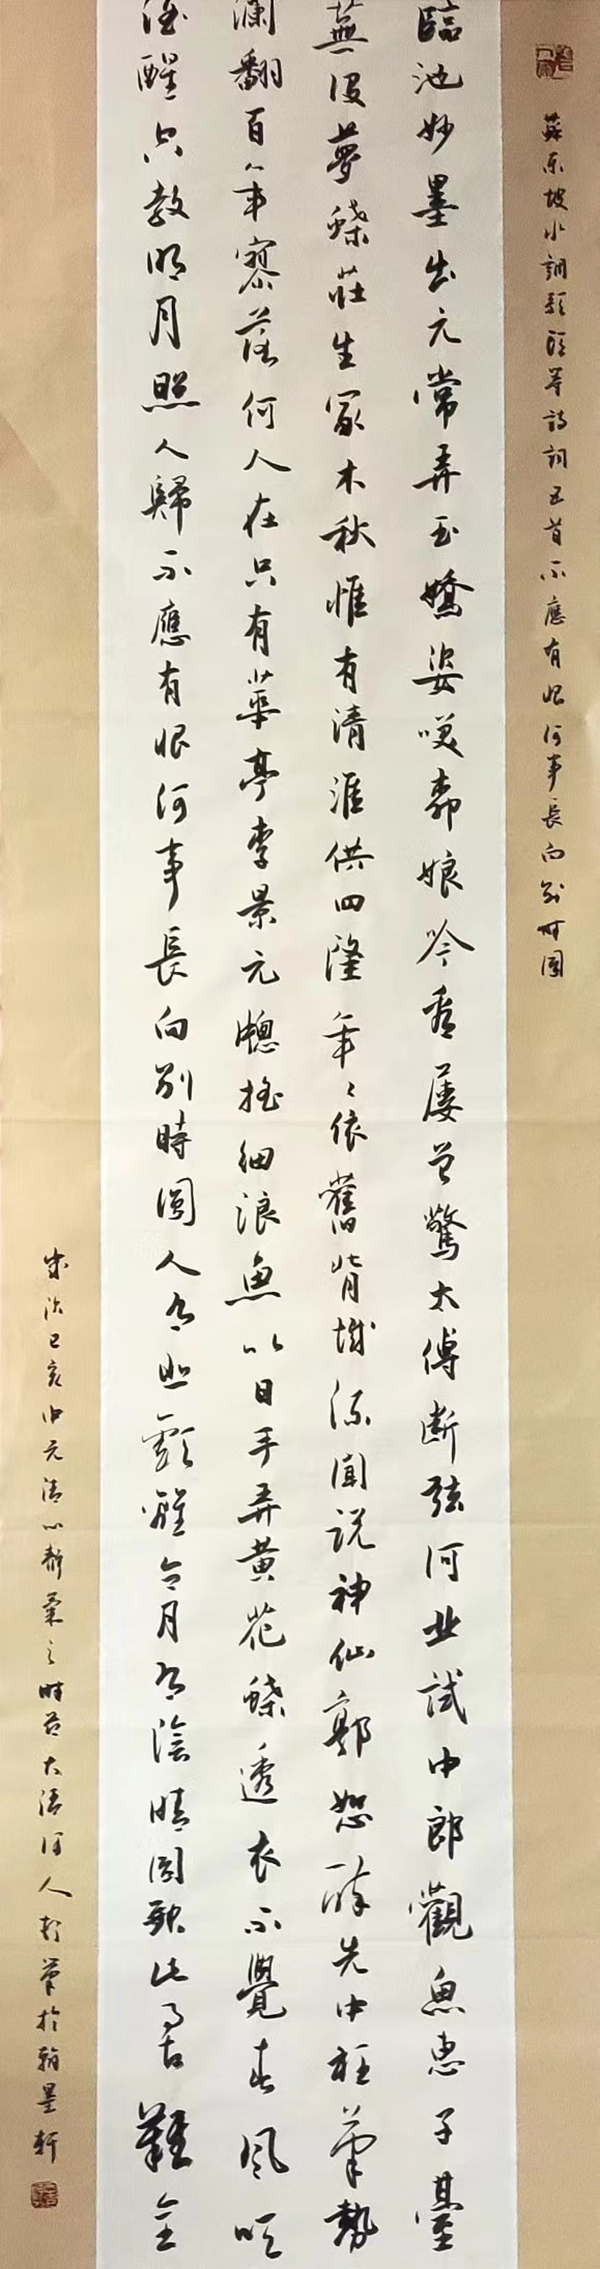 蘇東坡小詞題等詩詞五首不應有恨何事長向別時圓
臨池妙墨出元常弄玉嬌姿笑柳娘吟屢曾驚太傅斷弦何必試中郎觀魚惠子臺
蕪没夢蝶莊生冢木秋惟有清淮供四隆年々依舊背城流聞說神仙郭恕醉先中狂筆勢
瀾翻百年寥落何人在只有華亭李景元牕搖細浪魚吹日手弄黃花蝶透衣不覺春風吹
酒醒只教明月照人歸不應有恨何事長向別時圓人有悲歡離合月有陰晴圓缺此事古難全
歲次己亥中元清心靜氣之時大清河人筆於翰墨軒